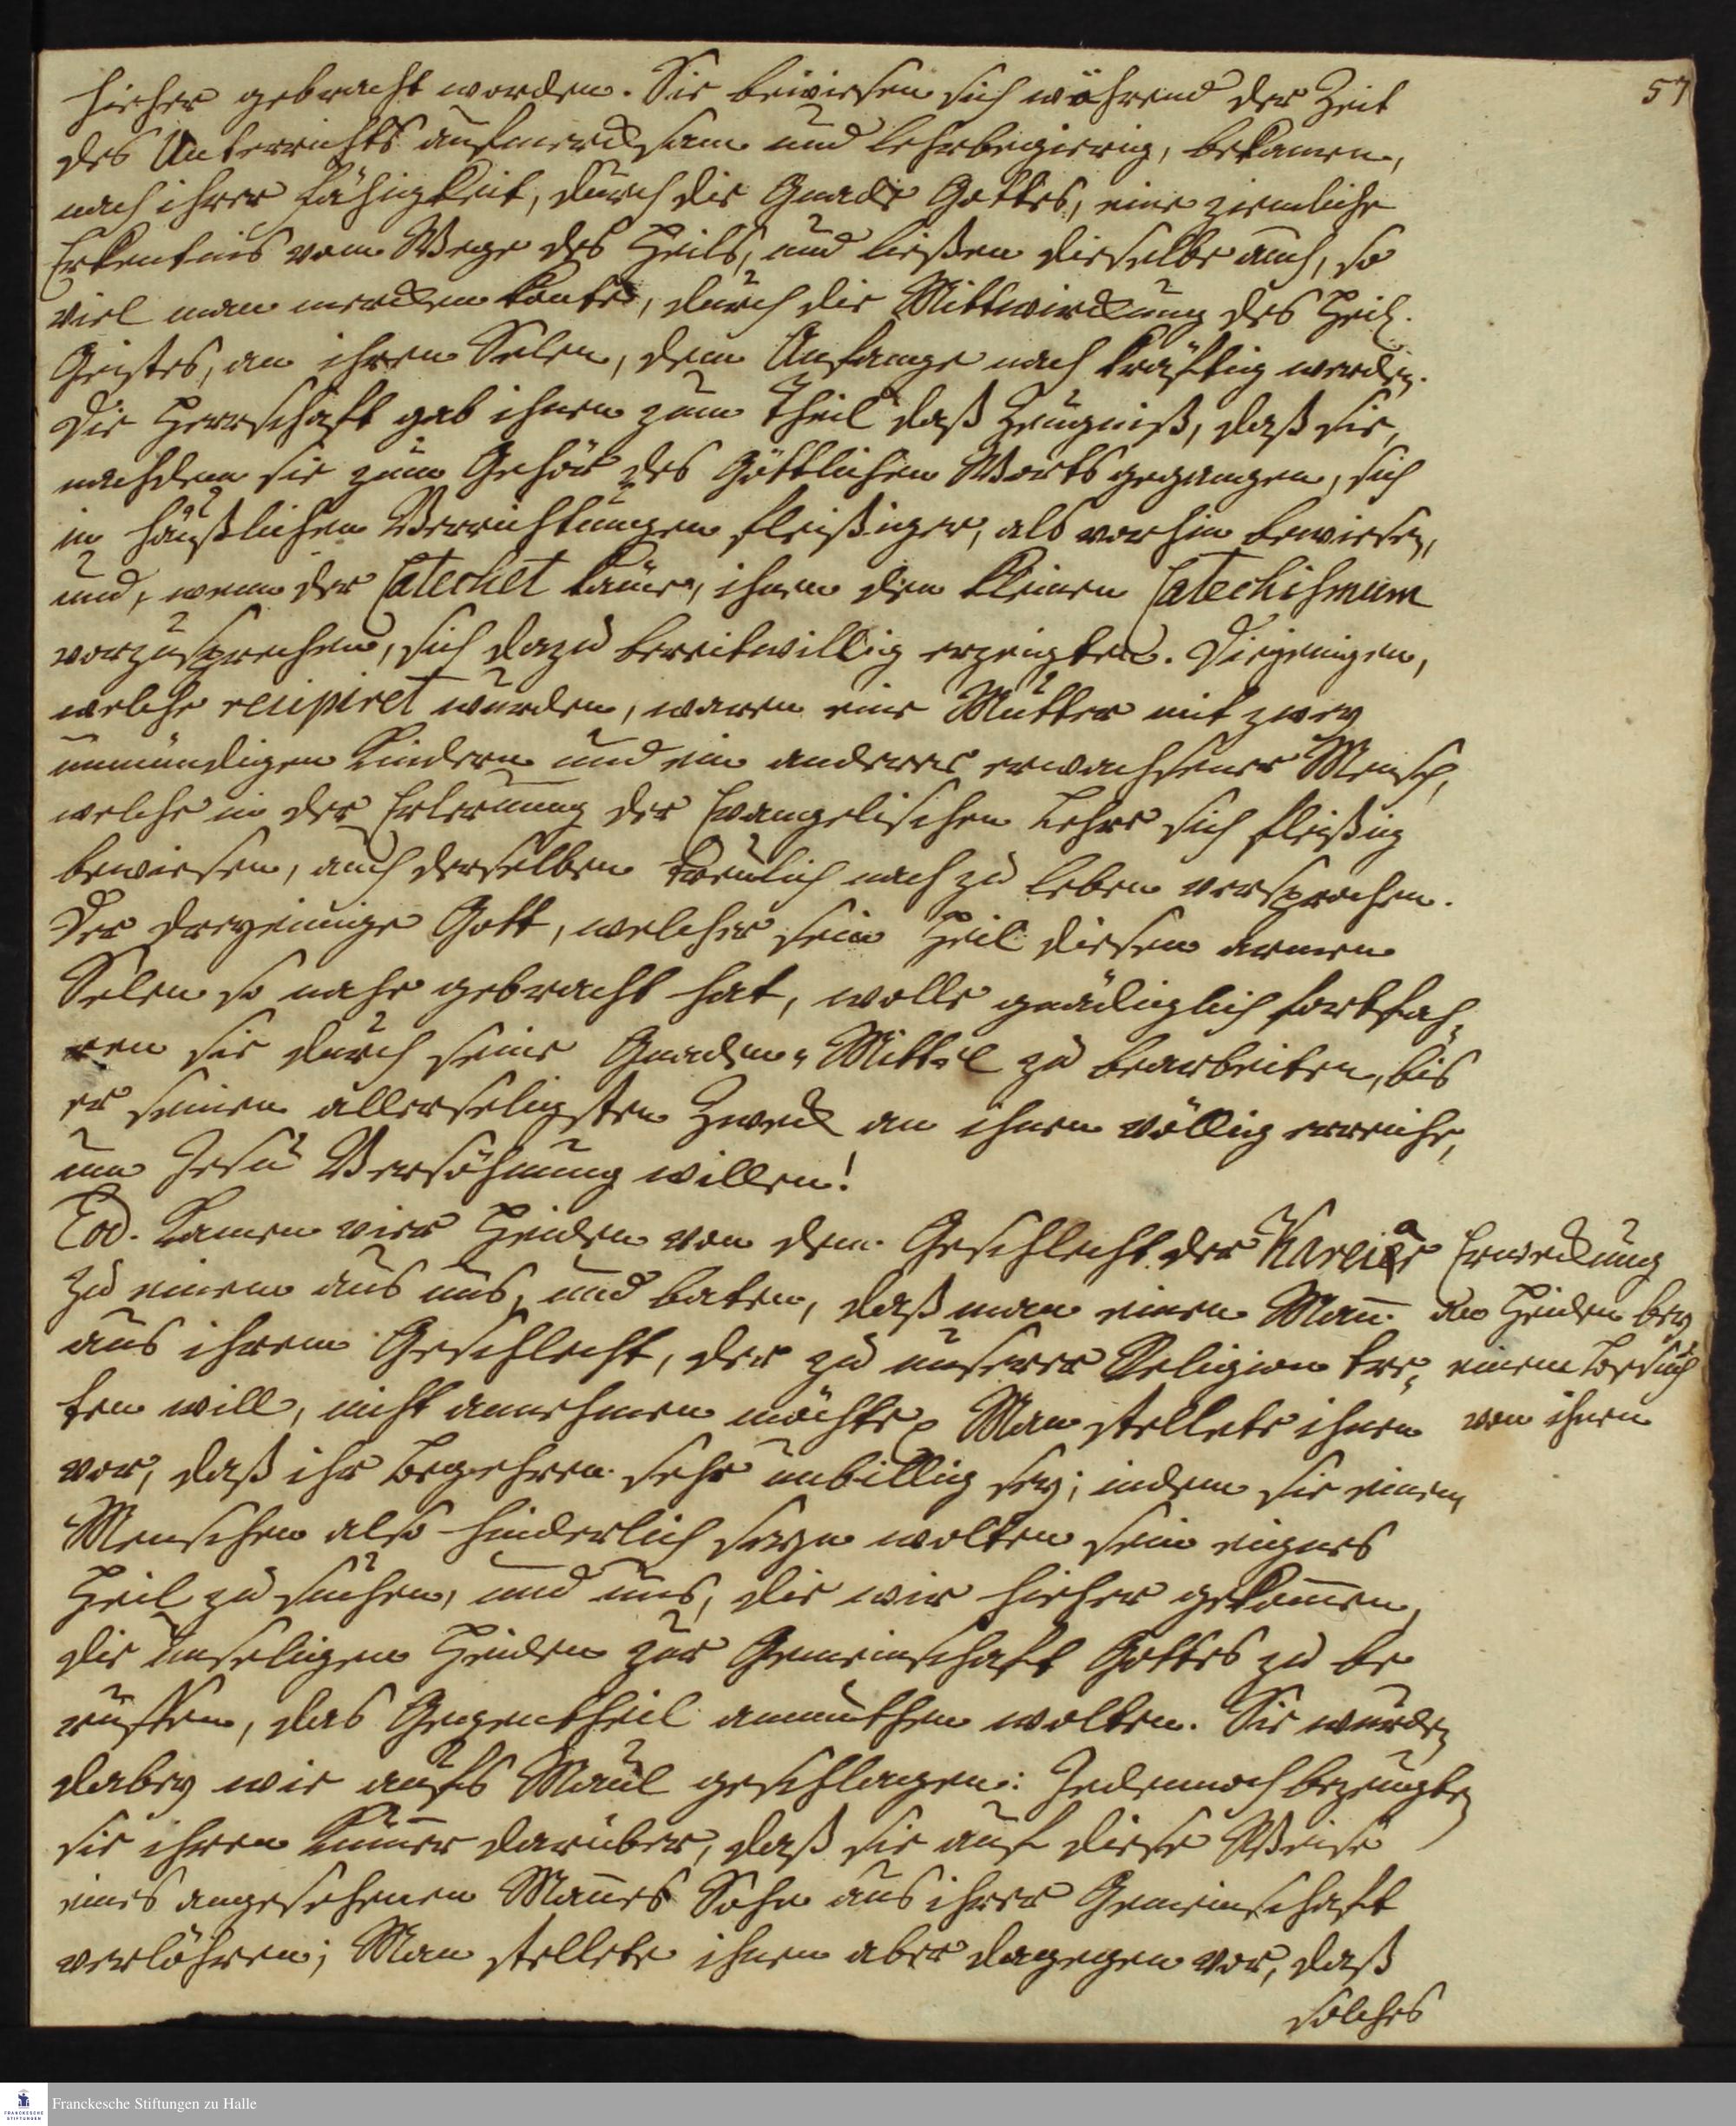 57
hieher gebracht worden. Sie bewiesen sich während der Zeit
des Unterrichts aufmercksam und lehrbegierig, bekamen,
nach ihrer Fähigkeit, durch die Gnade Gottes, eine ziemliche
Erkentnis vom Wege des Heils, und ließen dieselbe auch, so
viel man mercken konte, durch die Mittwirckung des Heil.
Geistes, an ihren Selen, dem Anfange nach kräftig werden.
Die Herrschaft gab ihnen zum Theil daß Zeugniß, daß sie,
nachdem sie zum Gehör des Göttlichen Worts gegangen, sich
in häußlichen Verrichtungen fleißiger, als vorhin bewiesen,
und, wenn der Catechet käme, ihnen den kleinen Catechismum
vorzusprechen, sich dazu bereitwillig erzeigten. Diejenigen,
welche recipiret wurden, waren eine Mutter mit zwey
unmündigen Kindern und ein anderer erwachsener Mensch,
welche in der Erlernung der Evangelischen Lehre sich fleißig
bewiesen, auch derselben treulich nach zu leben versprochen.
Der dreyeinige Gott, welcher sein Heil diesen armen
Selen so nahe gebracht hat, wolle gnädiglich fortfah-
ren sie durch seine Gnaden-Mittel zu bearbeiten, bis
er seinen allerseligsten Zweck an ihnen völlig erreiche,
um Jesu Versöhnung willen!
Eod. kamen vier Heiden von dem Geschlecht der
zu einem aus uns, und baten, daß man einen Mañ
aus ihrem Geschlecht, der zu unserer Religion tre-
ten will, nicht annehmen möchte. Man stellete ihnen
vor, daß ihr Begehren sehr unbillig sey; indem sie einem
Menschen also hinderlich seyn wolten sein eignes
Heil zu suchen, und uns, die wir hieher gekom̄en,
die unseligen Heiden zur Gemeinschaft Gottes zu be
ruffen, das Gegentheil anmuthen wolten. Sie wurden
dabey wie aufs Maul geschlagen: Jedennoch bezeugten
sie ihren Kum̄er darüber, daß sie auf diese Weise
eines angesehenen Mañes Sohn aus ihrer Gemeinschaft
verlöhren; Man stellete ihnen aber dagegen vor, daß
solches
Erweckung
an Heiden bey
einem Besuch
von ihnen
Franckesche Stiftungen zu Halle